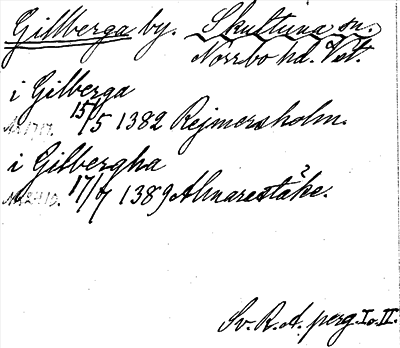 Gillberga by. Skultuna sn.
Norrbo hd. Vstl.
i Gilberga
15/5 1382 Rejmersholm.
i Gilbergha
17/7 1389 Almarestäke.
Sv. R. A. perg. I o. II.